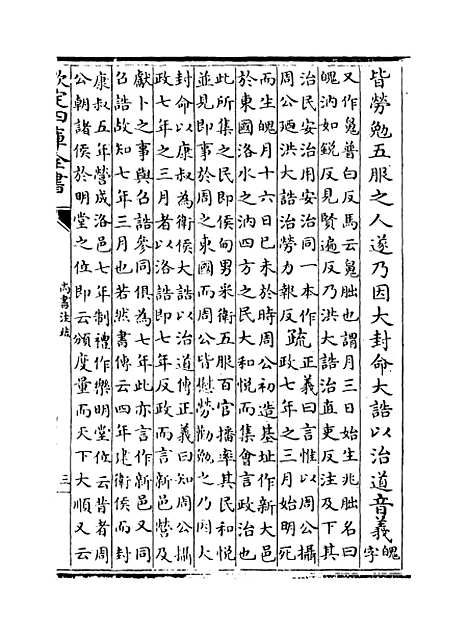 皆勞勉五服之人遂乃因大封命大誥以治道音義魄字
又作㲋普白反馬云㲋朏也謂月三日始生兆朏名曰
魄汭如銳反見賢遍反乃洪大誥治直吏反注及下其
治民安治用安治同一本作
周公迺洪大誥治勞力報反
疏
正義曰言惟以周公攝
政七年之三月始明死
而生魄月十六日巳未於時周公初造基址作新大邑
於東國洛水之汭四方之民大和悅而集會言政治也
此所集之民即侯甸男采衛五服百官播率其民和悅
並見即事於周之東國而周公皆慰勞勸勉之乃因大
封命以康叔為衛侯大誥以治道傳正義曰知周公攝
政七年之三月者以洛誥即七年反政而言新邑營及
獻卜之事與召誥參同俱為七年此亦言作新邑又同
召誥故知七年三月也若然書傳云四年建衛侯而封
康叔五年營成洛邑七年制禮作樂明堂位云昔者周
公朝諸侯於明堂之位即云頒度量而天下大順又云
欽定四庫全書
尚書注疏
三